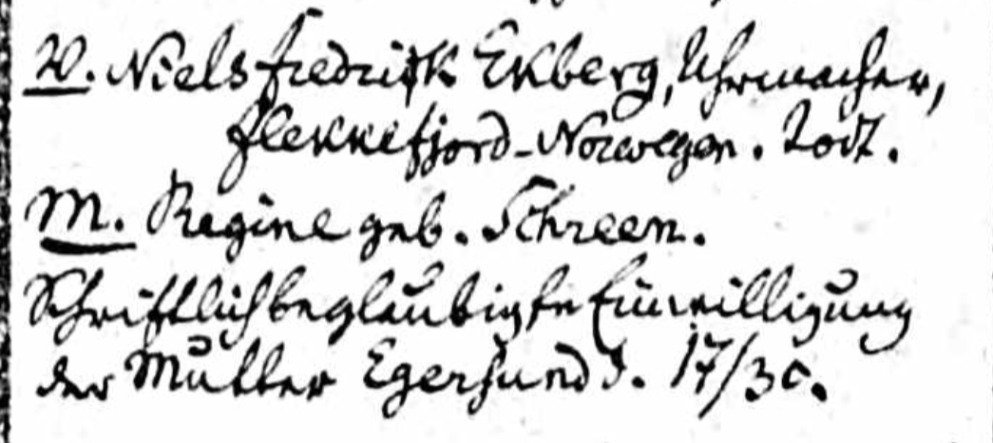 V. Niels Fredrick Ekberg, Uhrmacher,
Flekkefjord-Norwegen. Todt.
M. Regine geb. Schreen.
Schriftlich beglaubigte Einwilligung
der Mutter Egersund d. 17/30.